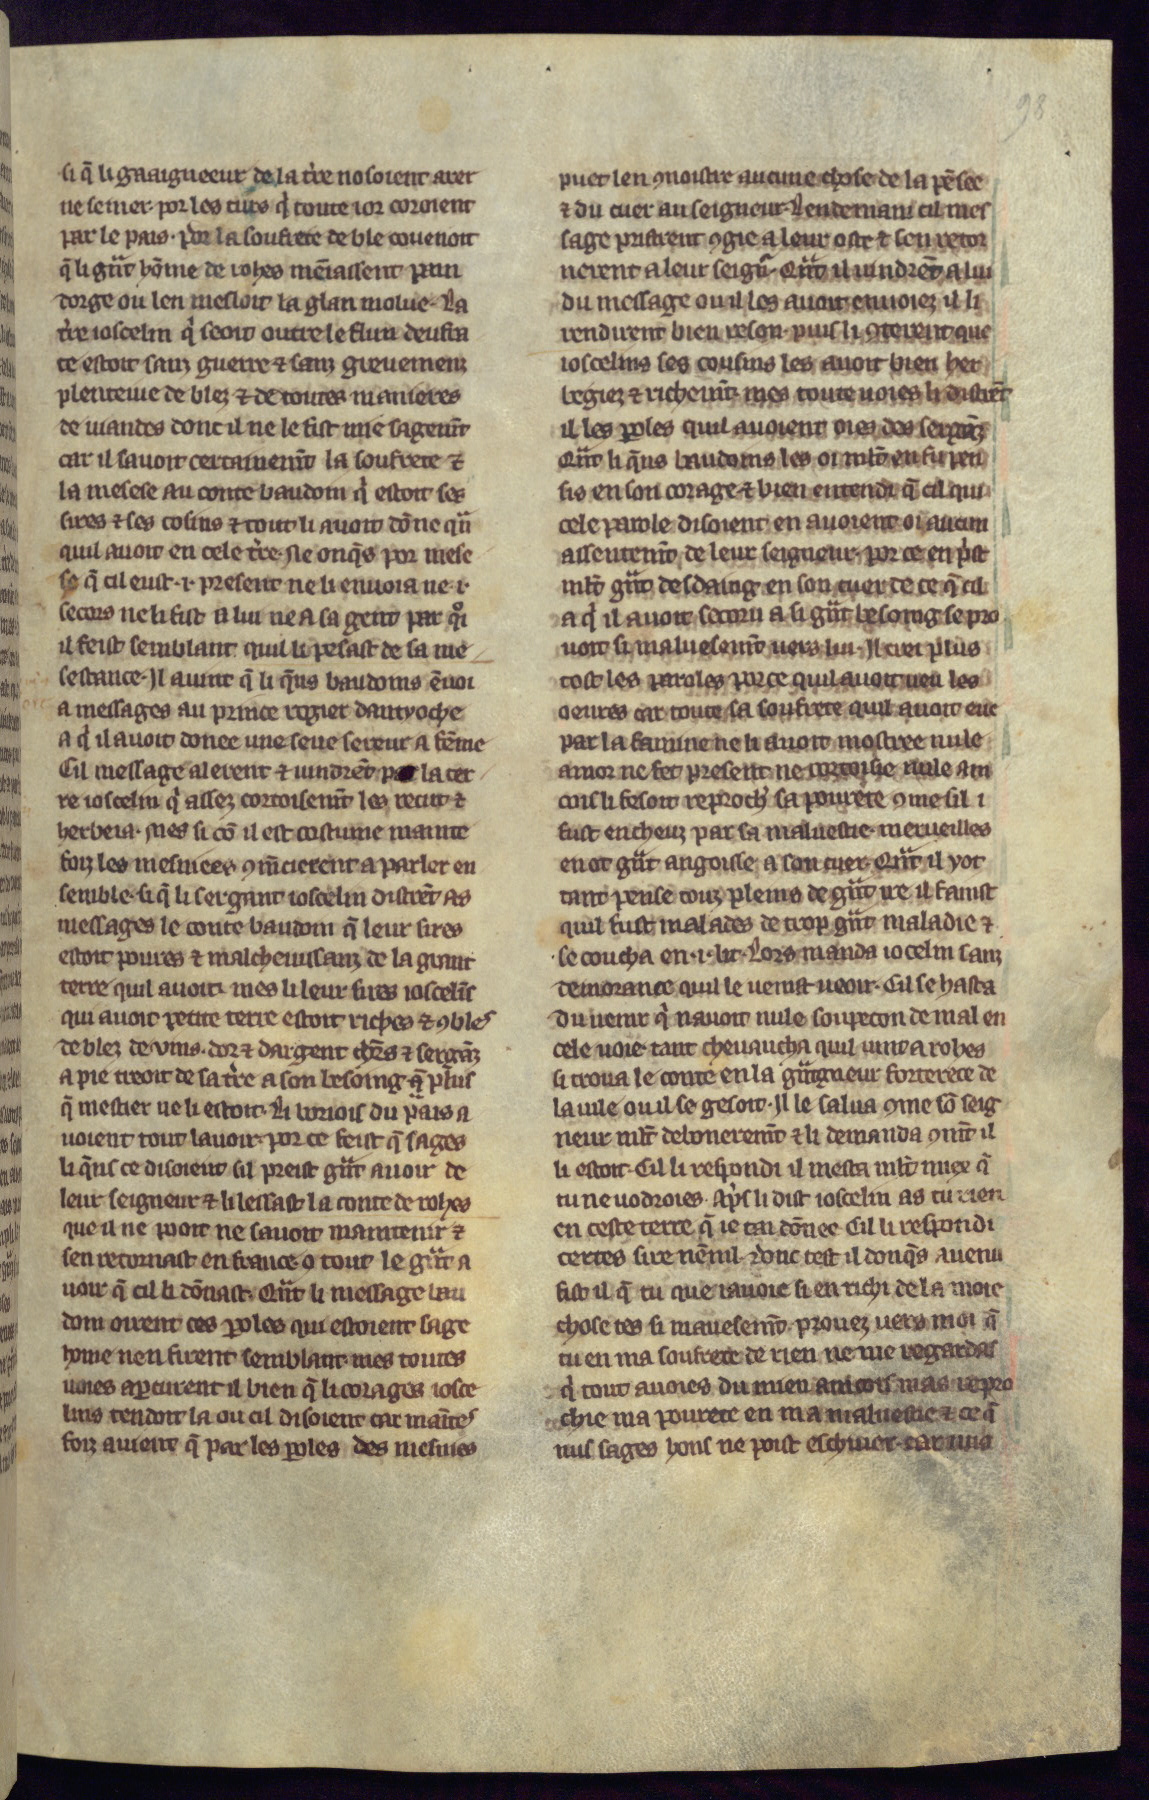 98
si q̄ li gaaigneeur de la t̄re nosoient arer
ne semer· por les turs q̇ toute ior coroient
par le pais· Por la soufrete de ble couenoit
q̄ li gñt hōme de rohes mēiassent pain
dorge ou len mesloit la glan molue· La
t̄re ioscelin q̇ seoit outre le flun deufra
te estoit sanz guerre ⁊ sanz greuemenz
plenteiue de blez ⁊ de toutes manieres
de uiandes donc il ne le fist mie sagem̄t
car il sauoit certainem̄t la soufrete ⁊
la mesese au conte baudoin q̇ estoit ses
sires ⁊ ses cosins ⁊ tout li auoit dōne q̄n
quil auoit en cele t̄re· Ne onq̄s por mese
se q̄ cil eust ·i· present ne li enuoia ne ·i·
secors ne li fist a lui ne a sa gent par q̊i
il feist semblant quil li pesast de sa me
sestance· Il auint q̄ li q̄ns baudoins ēuoi
a messages au prince rogier dantyoche
a q̇ il auoit donee une seue sereur a fēme
Cil message alerent ⁊ uindrēt par la ter
re ioscelin q̇ assez cortoisem̄t les recut ⁊
herberia· Mes si cō il est costume mainte
foiz les mesniees 9m̄cierent a parler en
semble· si q̄ li sergant ioscelin distrēt as
messages le conte baudoin q̄ leur sires
estoit poures ⁊ malcheuissanz de la grant
terre quil auoit· mes li leur sires ioscelīs
qui auoit petite terre estoit riches ⁊ 9bles
de blez de vins· dor ⁊ dargent ch̄rs ⁊ sergāz
a pie treoit de sa t̄re a son besoing· q̄ plus
q̄ mestier ne li estoit· Li boriois du pais a
uoient tout lauoir· por ce feist q̄ sages
li q̄ns ce disoient sil preist gñt auoir de
leur seigneur ⁊ li lessast la conte de rohes
que il ne pooit ne sauoit maintenir ⁊
sen retornast en france· o tout le gñt a
uoir q̄ cil li dōnast· Qñt li message bau
doin oirent ces ꝑoles qui estoient sage
home nen firent semblant· mes toutes
uoies aꝑcurent il bien q̄ li corages iosce
lins tendoit la ou cil disoient car maītes
foiz auient q̄ par les ꝑoles des mesnies
puet len 9noistre aucune chose de la pēsee
⁊ du cuer au seigneur· Lendemain cil mes
sage pristrent 9gie a leur oste ⁊ sen retor
nerent a leur seigñ· Qñt il uindrēt a lui
du message ou il les auoit enuoiez il li
rendirent bien reson· puis li 9terent que
ioscelins ses cousins les auoit bien her
begiez ⁊ richem̄t· mes toute uoies li distrēt
il les ꝑoles quil auoient oies des sergāz
Qñt li q̄ns baudoins les oi ml̄t en fu pen
sis en son corage ⁊ bien entendi q̄ cil qui
cele parole disoient en auoient oi aucun
assentem̄t de leur seigneur· por ce en p̄st
ml̄t gñt desdaing en son cuer de ce q̄ cil
a q̇ il auoit secoru a si gñt besoing se pro
uoit si maluesem̄t uers lui· Il crei plus
tost les paroles porce quil auoit ueu les
oeures car toute sa soufrete quil auoit eue
par la famine ne li auoit mostree nule
amor ne fet present ne cortoisie nule ain
cois li fesoit reproch̄ sa pourete 9me sil i
fust encheuz par sa maluestie· merueilles
en ot gñt angoisse a son cuer· Qñt il yot
tant pense touz pleins de gñt ire il fainst
quil fust malades de trop gñt maladie ⁊
se coucha en ·i· lit· Lors manda iocelin sanz
demorance quil le uenist ueoir· Cil se hasta
du uenir q̇ nauoit nule soupecon de mal en
cele uoie· tant cheuaucha quil uint a rohes
si troua le conte en la gñigneur forterece de
la uile ou il se gesoit· Il le salua 9me sō seig
neur ml̄t debonerem̄t ⁊ li demanda 9m̄t il
li estoit· Cil li respondi il mesta ml̄t miex q̄
tu ne uodroies· Ap̄s li dist ioscelin as tu rien
en ceste terre q̄ ie tai dōnee Cil li respondi
certes sire nēnil· Donc test il donq̄s auenu
fist il q̄ tu que iauoie si enrichi de la moie
chose tes si mauesem̄t prouez uers moi q̄
tu en ma soufrete de rien ne me regardas
q̇ tout auoies du mien ancois mas repro
chie ma pourete en ma maluestie ⁊ ce q̄
nus sages hons ne poist eschiuer· car nus